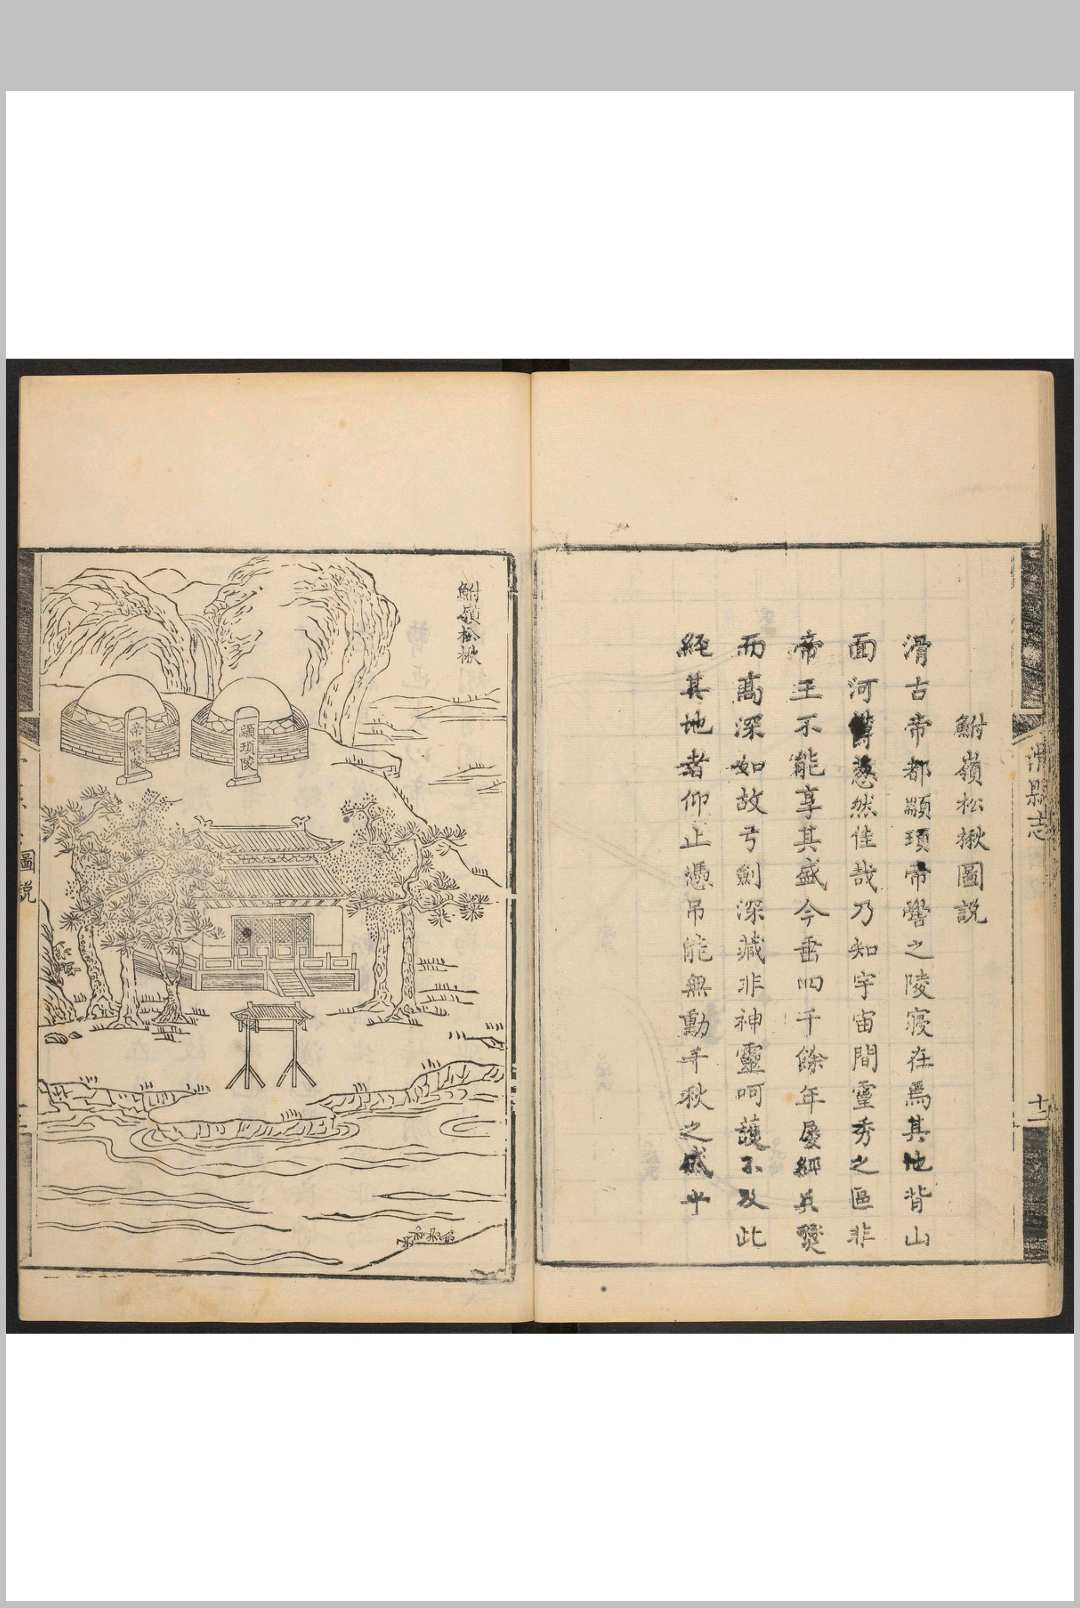 滑縣志
十二
鮒嶺松楸圖説
滑古帝都顓頊帝嚳之陵寢在焉其地背山
面河鬱葱然佳哉乃知宇宙間靈秀之區非
帝王不能享其盛今垂四千餘年屢經兵燹
而高深如故弓劍深藏非神靈呵護不及此
經其地者仰止憑吊能無動千秋之感乎
鮒嶺松楸
顓頊陵
帝嚳陵
圖説